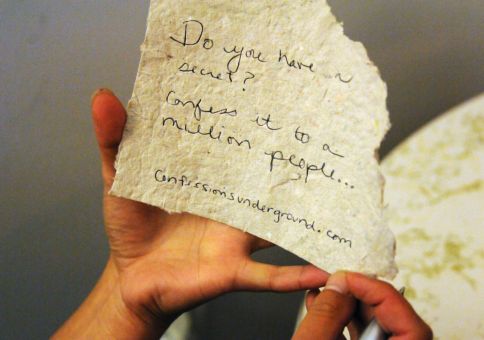 Do you have a
secret?
Confess it to a
million people...
Confessionsunderground.com